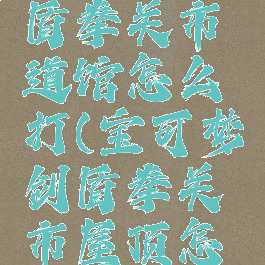 盾拳关市
道馆怎么
打(宝可梦
刨盾拳关
市屋顶怎